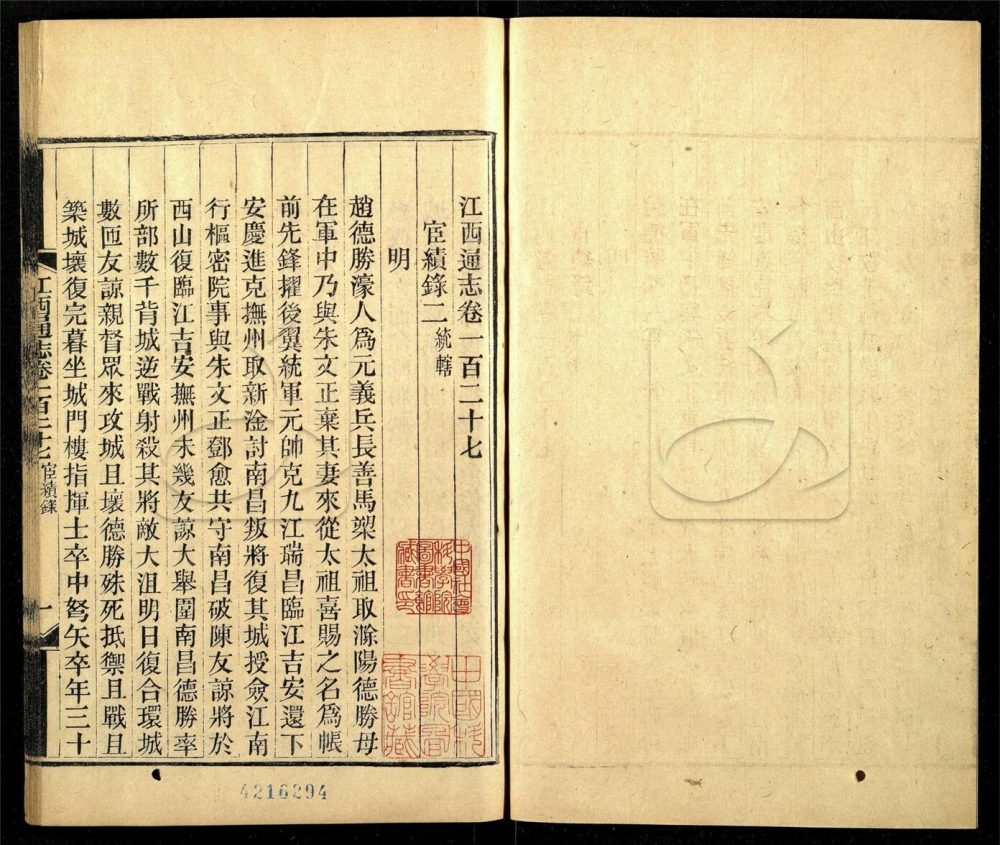 江西通志卷一百二十七
宦績錄二 統轄
明
趙德勝濠人爲元義兵長善馬槊太祖取滁陽德勝母
在軍中乃與朱文正棄其妻來從太祖喜賜之名爲帳
前先鋒擢後翼統軍元帥克九江瑞昌臨江吉安還下
安慶進克撫州取新淦討南昌叛將復其城授僉江南
行樞密院事與朱文正鄧愈共守南昌破陳友諒將於
西山復臨江吉安撫州未幾友諒大舉圍南昌德勝率
所部數千背城逆戰射殺其將敵大沮明日復合環城
數匝友諒親督眾來攻城且壞德勝殊死抵禦且戰且
築城壞復完暮坐城門樓指揮士卒中弩矢卒年三十
江西通志卷一百二十七 宦績錄
一
中國社會
科學院
圖書館
藏書印
中國科
學院圖
書館藏
4216294